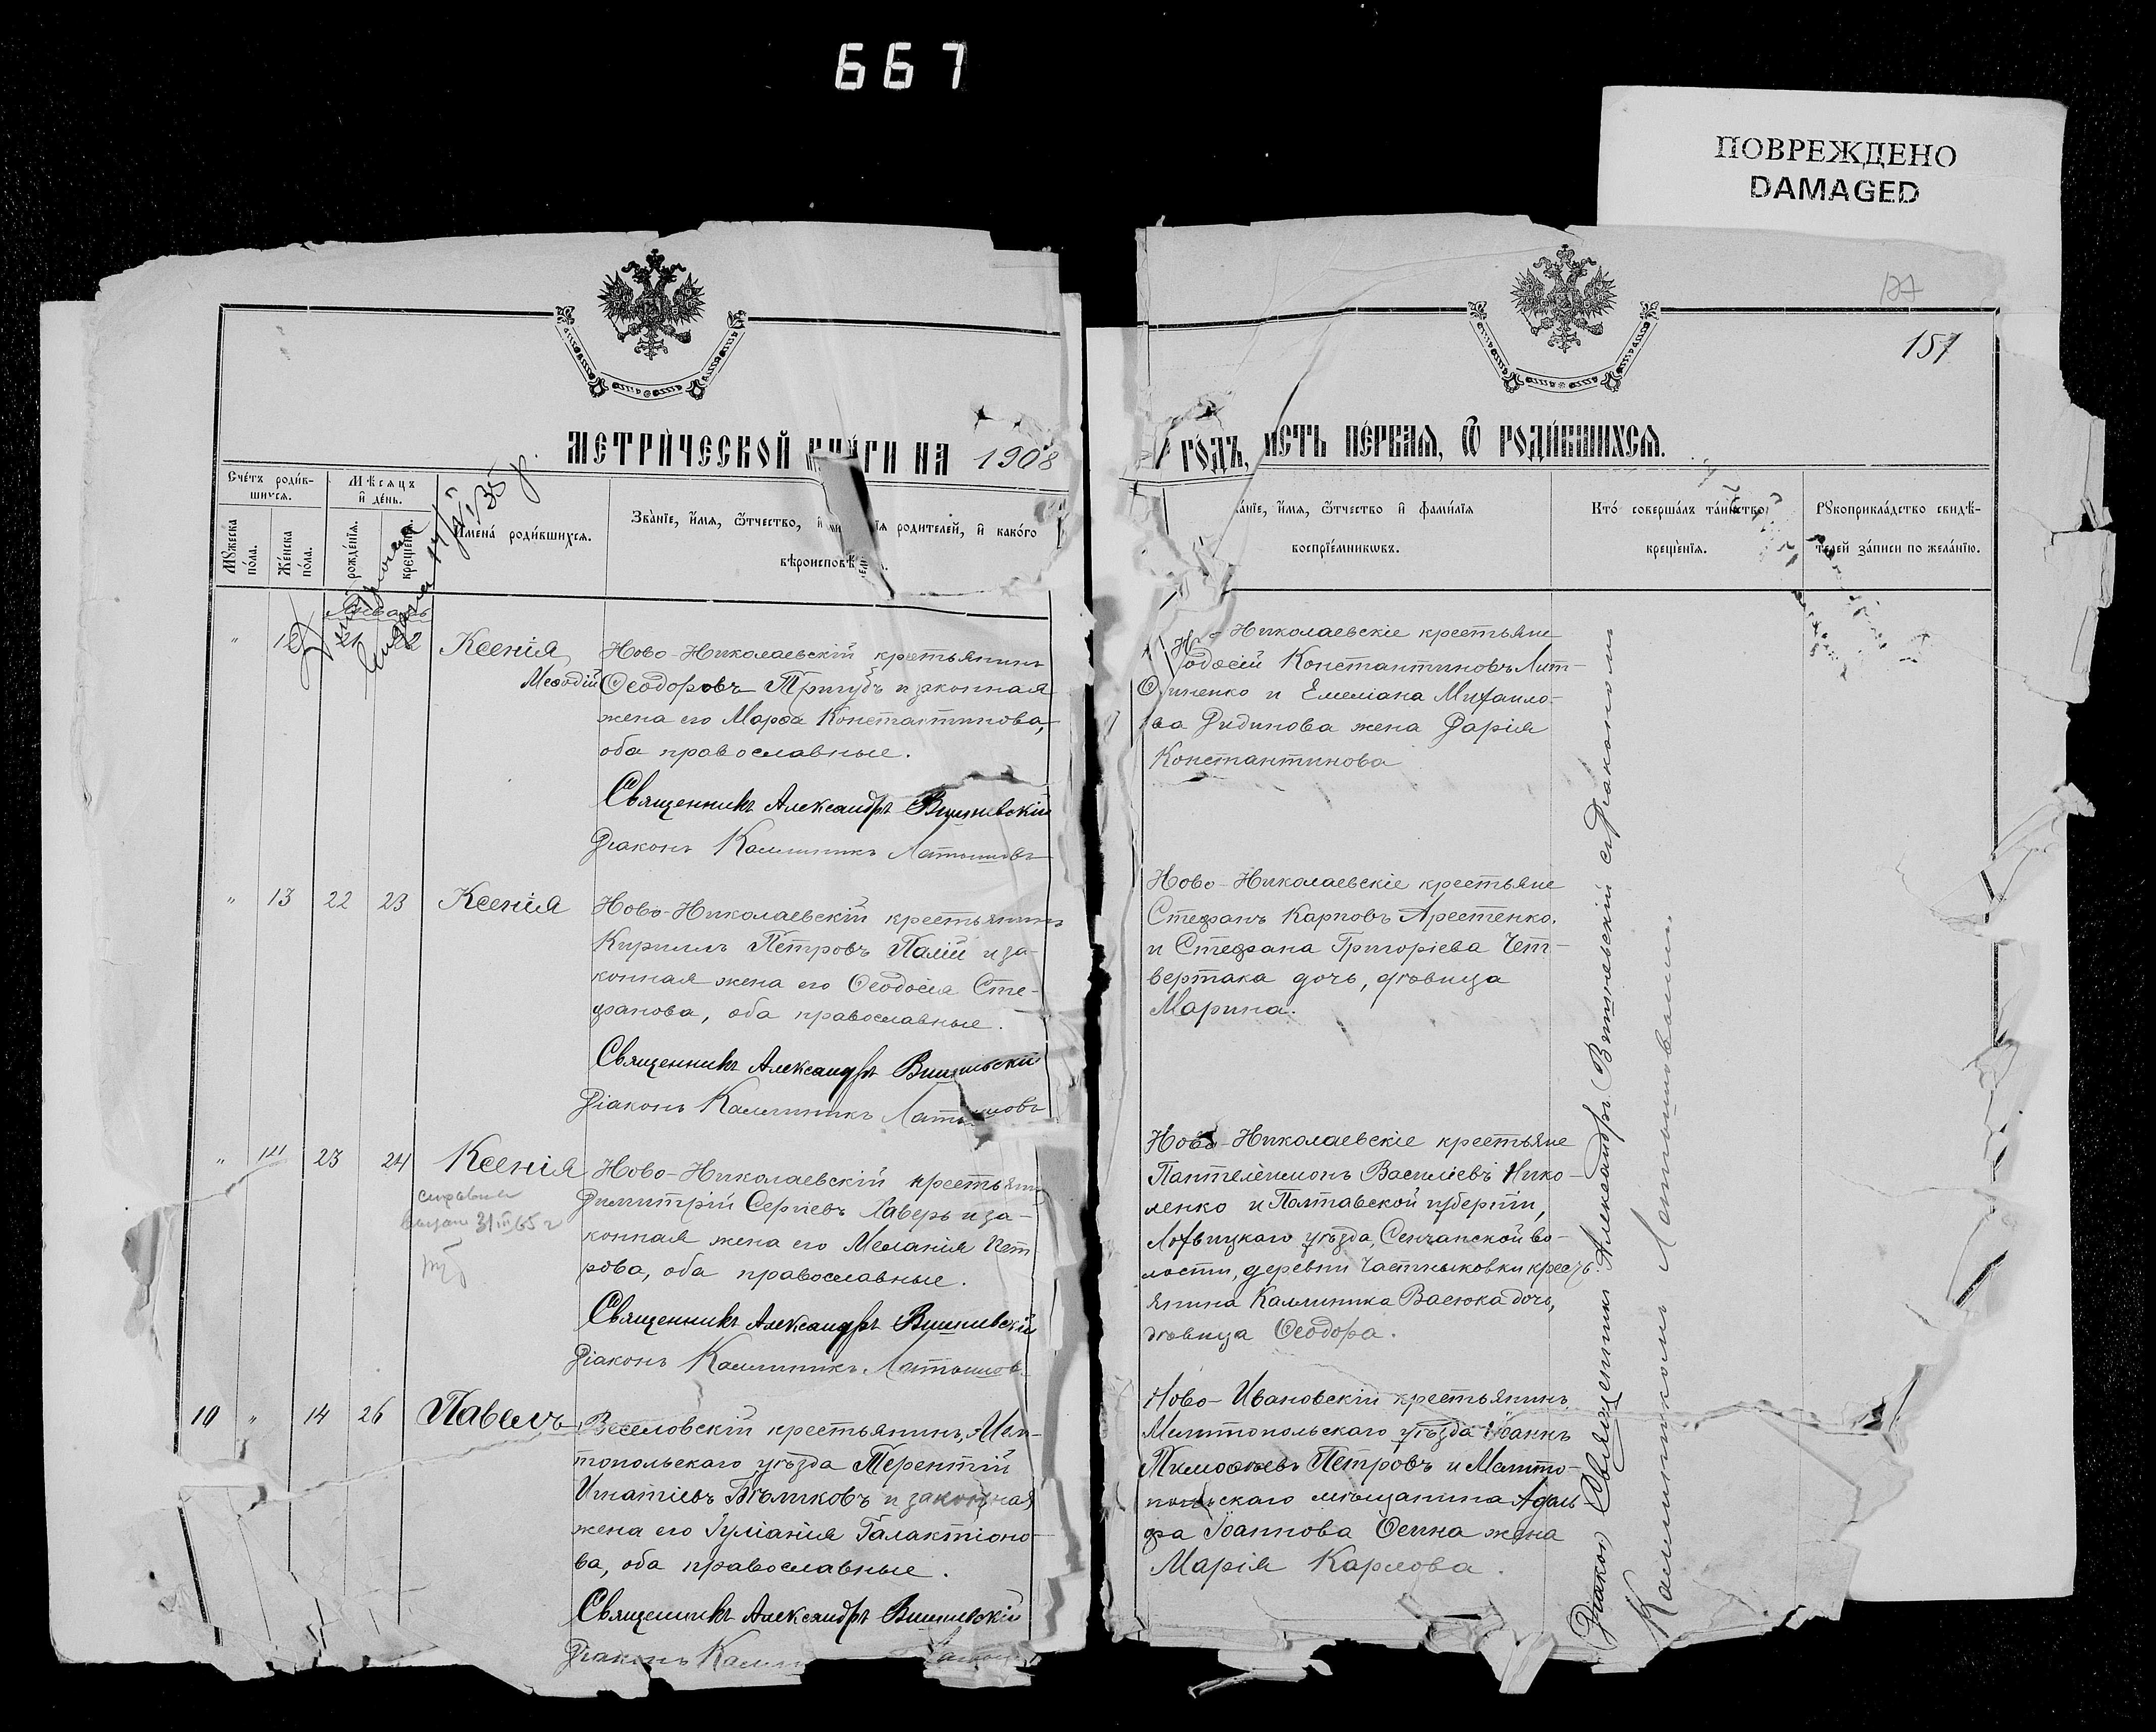 667
ПОВРЕЖДЕНО
DAMAGED
157
МЕТРИЧЕСКОЙ КНИГИ НА 1908
ГОДЪ, ИСТЬ ПЕРВАЯ, Ѿ РОДИВШИХСЯ.
Счетъ родив-
шихся.
Мѣсяцъ
и день.
Мужеска пола.
Женска пола.
рожденія.
крещенія.
Имена родившихся.
Званіе, имя, ѿчество, и родителей, и какого
вѣроисповѣ
аніе, имя, ѿчество и фамилія
воспріемниковъ.
Кто совершалъ таинство
крещенія.
Рукоприкладство свидѣ-
телей записи по желанію.
Январь
" 12 21 22 Ксенія
Ново-Николаевскій крестьянинъ
Меѳодій Ѳеодоровъ Тригубъ и законная
жена его Марѳа Константинова,
оба православные.
Священникъ Александръ Вишневскій
Діаконъ Каллиникъ Латышовъ
Николаевскіе крестьяне
одосій Константиновъ Лит-
виненко и Емеліана Михаило-
ва Дидинова жена Дарія
Константинова
" 13 22 23 Ксенія
Ново-Николаевскій крестьянинъ
Кириллъ Петровъ Палій и за-
конная жена его Ѳеодосія Сте-
фанова, оба православные.
Священникъ Александръ Вишневскій
Діаконъ Каллиникъ Латышовъ
Ново-Николаевскіе крестьяне
Стефанъ Карповъ Арестенко.
и Стефана Григоріева Чет-
вертака дочь, дѣвица
Марина.
" 14 23 24 Ксенія
справка
выдана 31/III 65 г
Ново-Николаевскій крестьянин
Димитрій Сергіевъ Лаверъ и за-
конная жена его Меланія Пет
рова, оба православные.
Священникъ Александръ Вишневскій
Діаконъ Каллиникъ Латышов
Ново-Николаевскіе крестьяне
Пантелеимонъ Василіевъ Нико-
ленко и Полтавской губерніи,
Лохвицкаго уѣзда, Сенчанской во-
лости, деревни Частниковки крест-
янина Каллиника Васюка дочь,
дѣвица Ѳеодора.
10 " 14 26 Павелъ
Веселовскій крестьянинъ, Мели-
топольскаго уѣзда Терентій
Игнатіевъ Бѣликовъ и законная
жена его Іуліанія Галактіоно-
ва, оба православные.
Священникъ Александръ Вишневскій
Діаконъ Калли
Ново-Ивановскій крестьянинъ
Мелитопольскаго уѣзда Іоаннъ
Тимоѳеевъ Петровъ и Мелито-
польскаго мѣщанина Адоль-
фа Іоаннова Осина жена
Марія Карлова.
Священникъ Александръ Вишневскій съ Діакономъ
Каллиникомъ Латышовымъ.